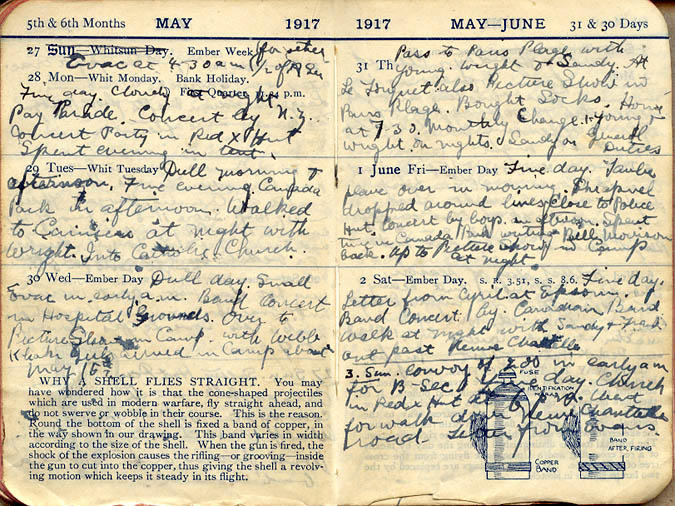 5th & 6th Months MAY 1917
27 Sun—Whitsun Day. Ember Week
Evac at 4.30 am
28 Mon—Whit Monday. Bank Holiday.
Fine day. Cloudy night
Pay Parade. Concert by N.Z.
Concert Party in Red X Hut
Spent evening in tent.
29 Tues—Whit Tuesday Dull morning &
afternoon. Fine evening. Canada
Park in afternoon. Walked
to Camiers at night with
Wright. Into Catholic Church.
30 Wed—Ember Day Dull day. Small
Evac in early a.m. Band Concert
in Hospital Grounds. Over to
Picture Show in Camp with Webb
Khaki arrived in Camp about
May 15th
WHY A SHELL FLIES STRAIGHT. You may
have wondered how it is that the cone-shaped projectiles
which are used in modern warfare, fly straight ahead, and
do not swerve or wobble in their course. This is the reason.
Round the bottom of the shell is fixed a band of copper, in
the way shown in our drawing. This band varies in width
according to the size of the shell. When the gun is fired, the
shock of the explosion causes the rifling—or grooving—inside
the gun to cut into the copper, thus giving the shell a revolv-
ing motion which keeps it steady in its flight.
1917 MAY—JUNE 31 & 30 Days
Pass to Paris Plage with
31 Th Young. Wright & Sandy. At
Le Touquet also Picture Show in
Paris Plage. Bought Socks. Home
at 7.30. Monthly Change. Young &
Wright on nights. Sandy on General
Duties
1 June Fri—Ember Day Fine day. Taube
plane over in morning. Shrapnel
dropped around lines close to Police
Hut. Concert by boys in afternoon. Spent
time in Canada Park writing. Bill Morrison
back. Up to Picture show in Camp
at night
2 Sat—Ember Day. S. R. 3.51, S. S. 8.6. Fine day.
Letter from Cyril at Epsom.
Band Concert by Canadian Band
Walk at night with Sandy & Frank
out past
3. Sun. Convoy of 200 in early am
for B-Sec. Fine day. Church
in Red X Hut
for walk down
road. Letter from Evans
FUSE
IDENTIFICATION
COPPER
BAND
BAND
AFTER FIRING